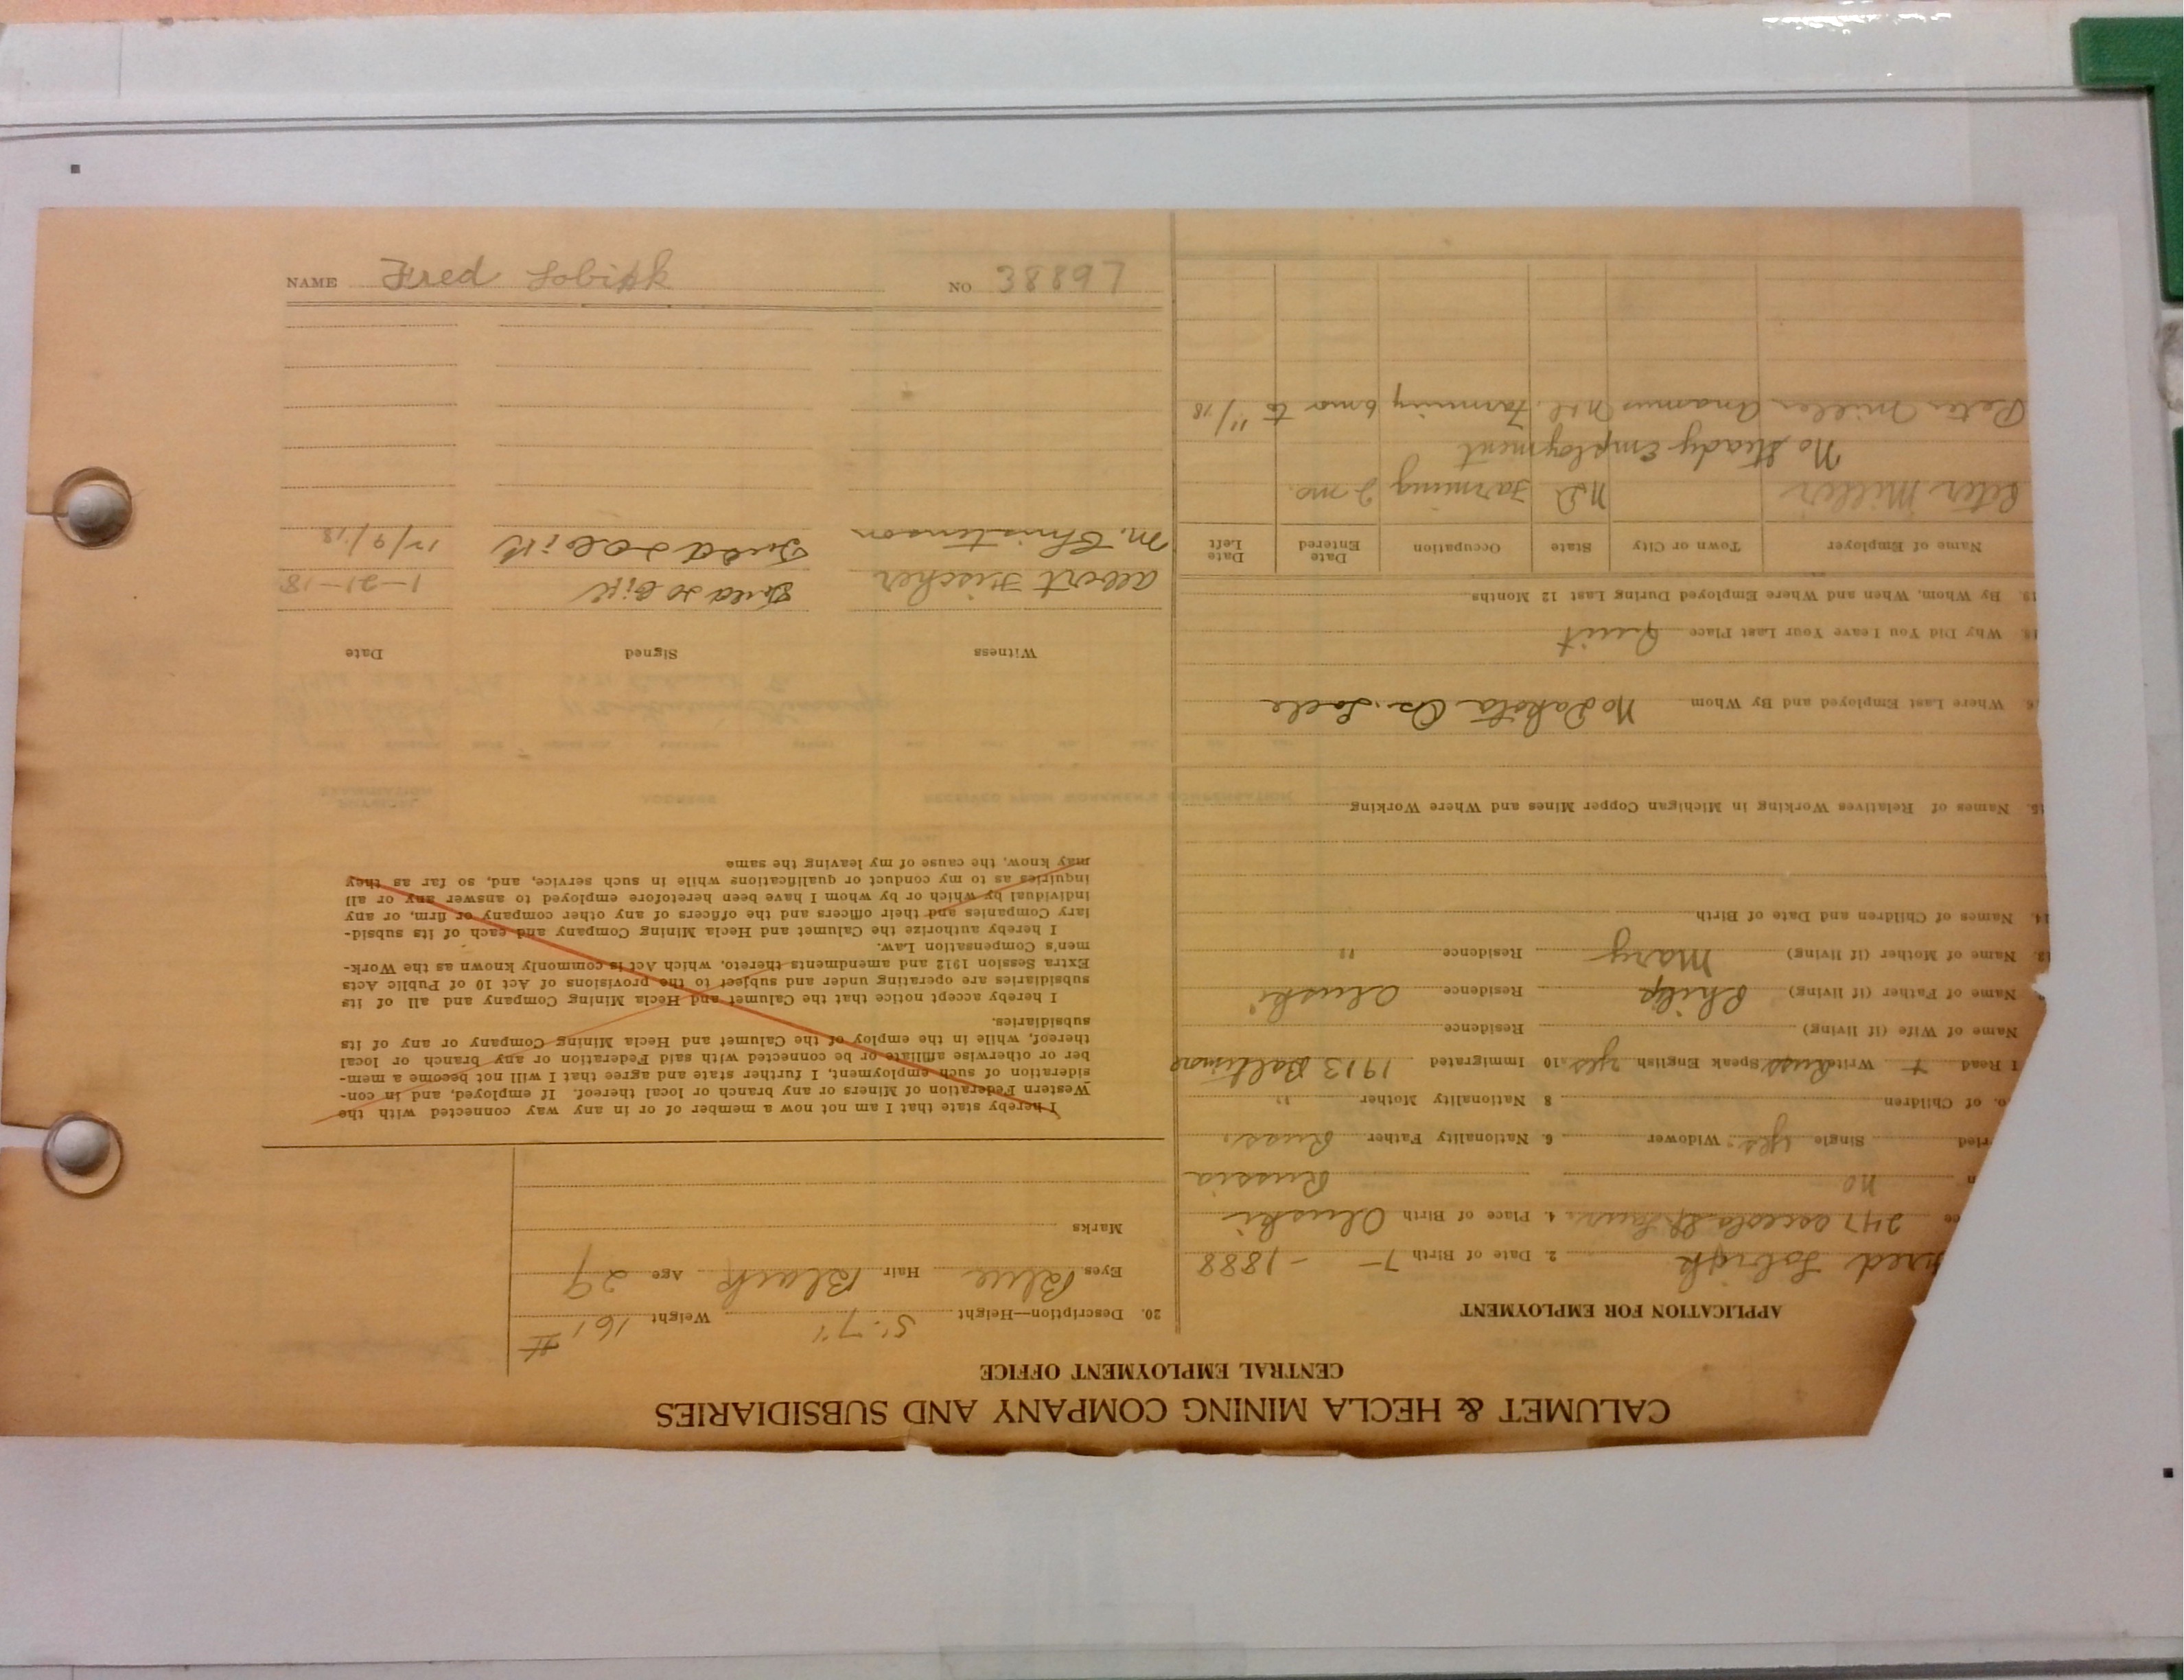 CALUMET & HECLA MINING COMPANY AND SUBSIDIARIES
CENTRAL EMPLOYMENT OFFICE
APPLICATION FOR EMPLOYMENT
2. Date of Birth 7- -1888
247 Osceola St 4. Place of Birth Oluski
no Russia
Single yes. Widower 6. Nationality Father Russ.
of Children 8 Nationality Mother "
I Read + Write Russ Speak English yes 10 Immigrated 1913 Baltimore
Name of Wife (if living) Residence
Name of Father (if living) Philip Residence Oluski
Name of Mother (if living) Mary Residence "
14. Names of Children and Date of Birth
15. Names of Relatives Working in Michigan Copper Mines and Where Working
Where Last Employed and By Whom No Dakota
Why Did You Leave Your Last Place Quit
19. By Whom, When and Where Employed During Last 12 Months.
Name of Employer Town or City State Occupation Date Entered Date Left
Peter Miller N.D. Farming 2 mo.
No Steady Employment
Peter Miller Anamus N.D. Farming 6 mo to 11/18
20. Description—Height 5'-7" Weight 161 #
Eyes Blue Hair Black Age 29
Marks
I hereby state that I am not now a member of or in any way connected with the
Western Federation of Miners or any branch or local thereof. If employed, and in con-
sideration of such employment, I further state and agree that I will not become a mem-
ber or otherwise affiliate or be connected with said Federation or any branch or local
thereof, while in the employ of the Calumet and Hecla Mining Company or any of its
subsidiaries.
I hereby accept notice that the Calumet and Hecla Mining Company and all of its
subsidiaries are operating under and subject to the provisions of Act 10 of Public Acts
Extra Session 1912 and amendments thereto, which Act is commonly known as the Work-
men's Compensation Law.
I hereby authorize the Calumet and Hecla Mining Company and each of its subsid-
iary Companies and their officers and the officers of any other company or firm, or any
individual by which or by whom I have been heretofore employed to answer any or all
inquiries as to my conduct or qualifications while in such service, and, so far as they
may know, the cause of my leaving the same
Witness Signed Date
Albert Fischer Fred Sobik 1-21-18
M. Christenson Fred Sobik 12/9/18
NAME Fred Sobik NO 38897